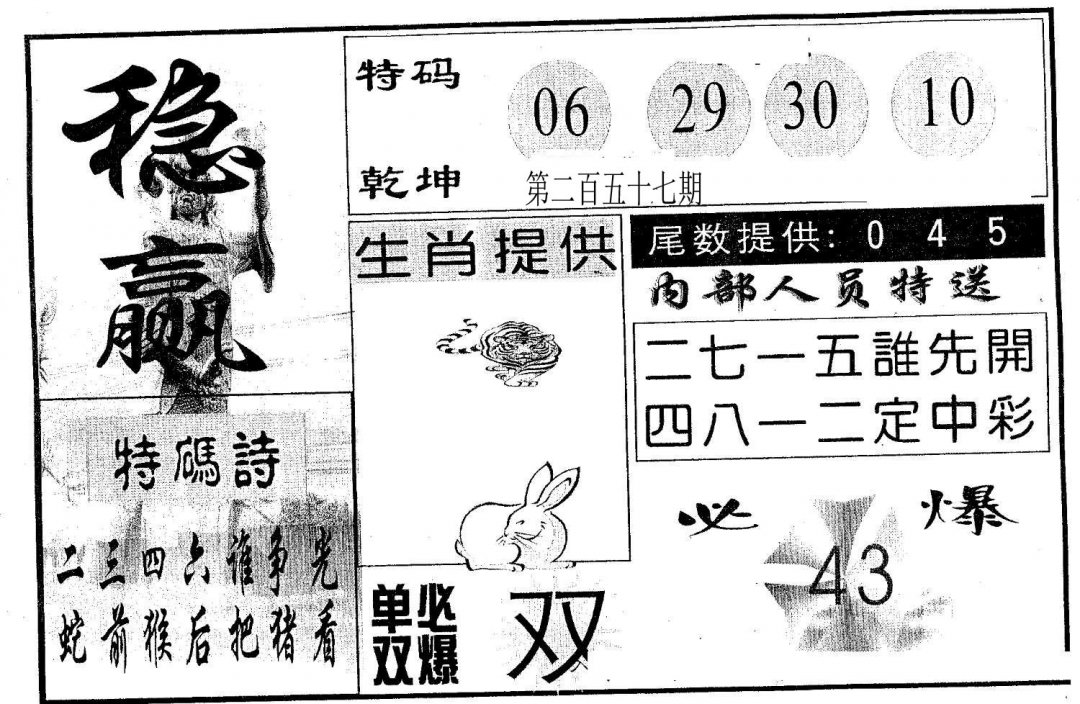 稳
赢
特码
乾坤
06 29 30 10
第二百五十七期
生肖提供
尾数提供: 0 4 5
内部人员特送
二七一五誰先開
四八一二定中彩
特碼詩
二三四六谁争光
蛇前猴后把猪看
单双
必爆
双
必爆
43